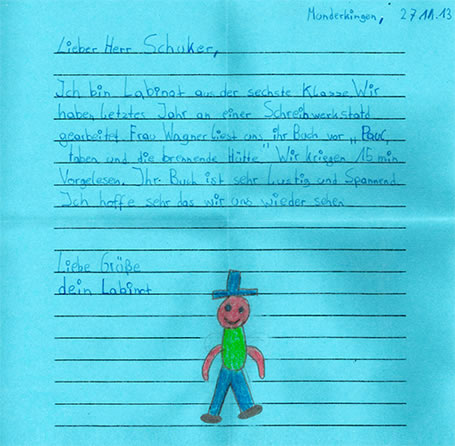 Munderkingen, 27.11.13
Lieber Herr Schuker,
Ich bin Labinot aus der sechste Klasse Wir
haben letztes Jahr an einer Schreibwerkstatd
gearbeitet. Frau Wagner liest uns ihr Buch vor „Paul,
und die brennende Hütte" Wir kriegen 15 min
Vorgelesen. Ihr Buch ist sehr Lustig und Spannend
Ich hoffe sehr das wir uns wieder sehen
Liebe Größe
dein Labinot